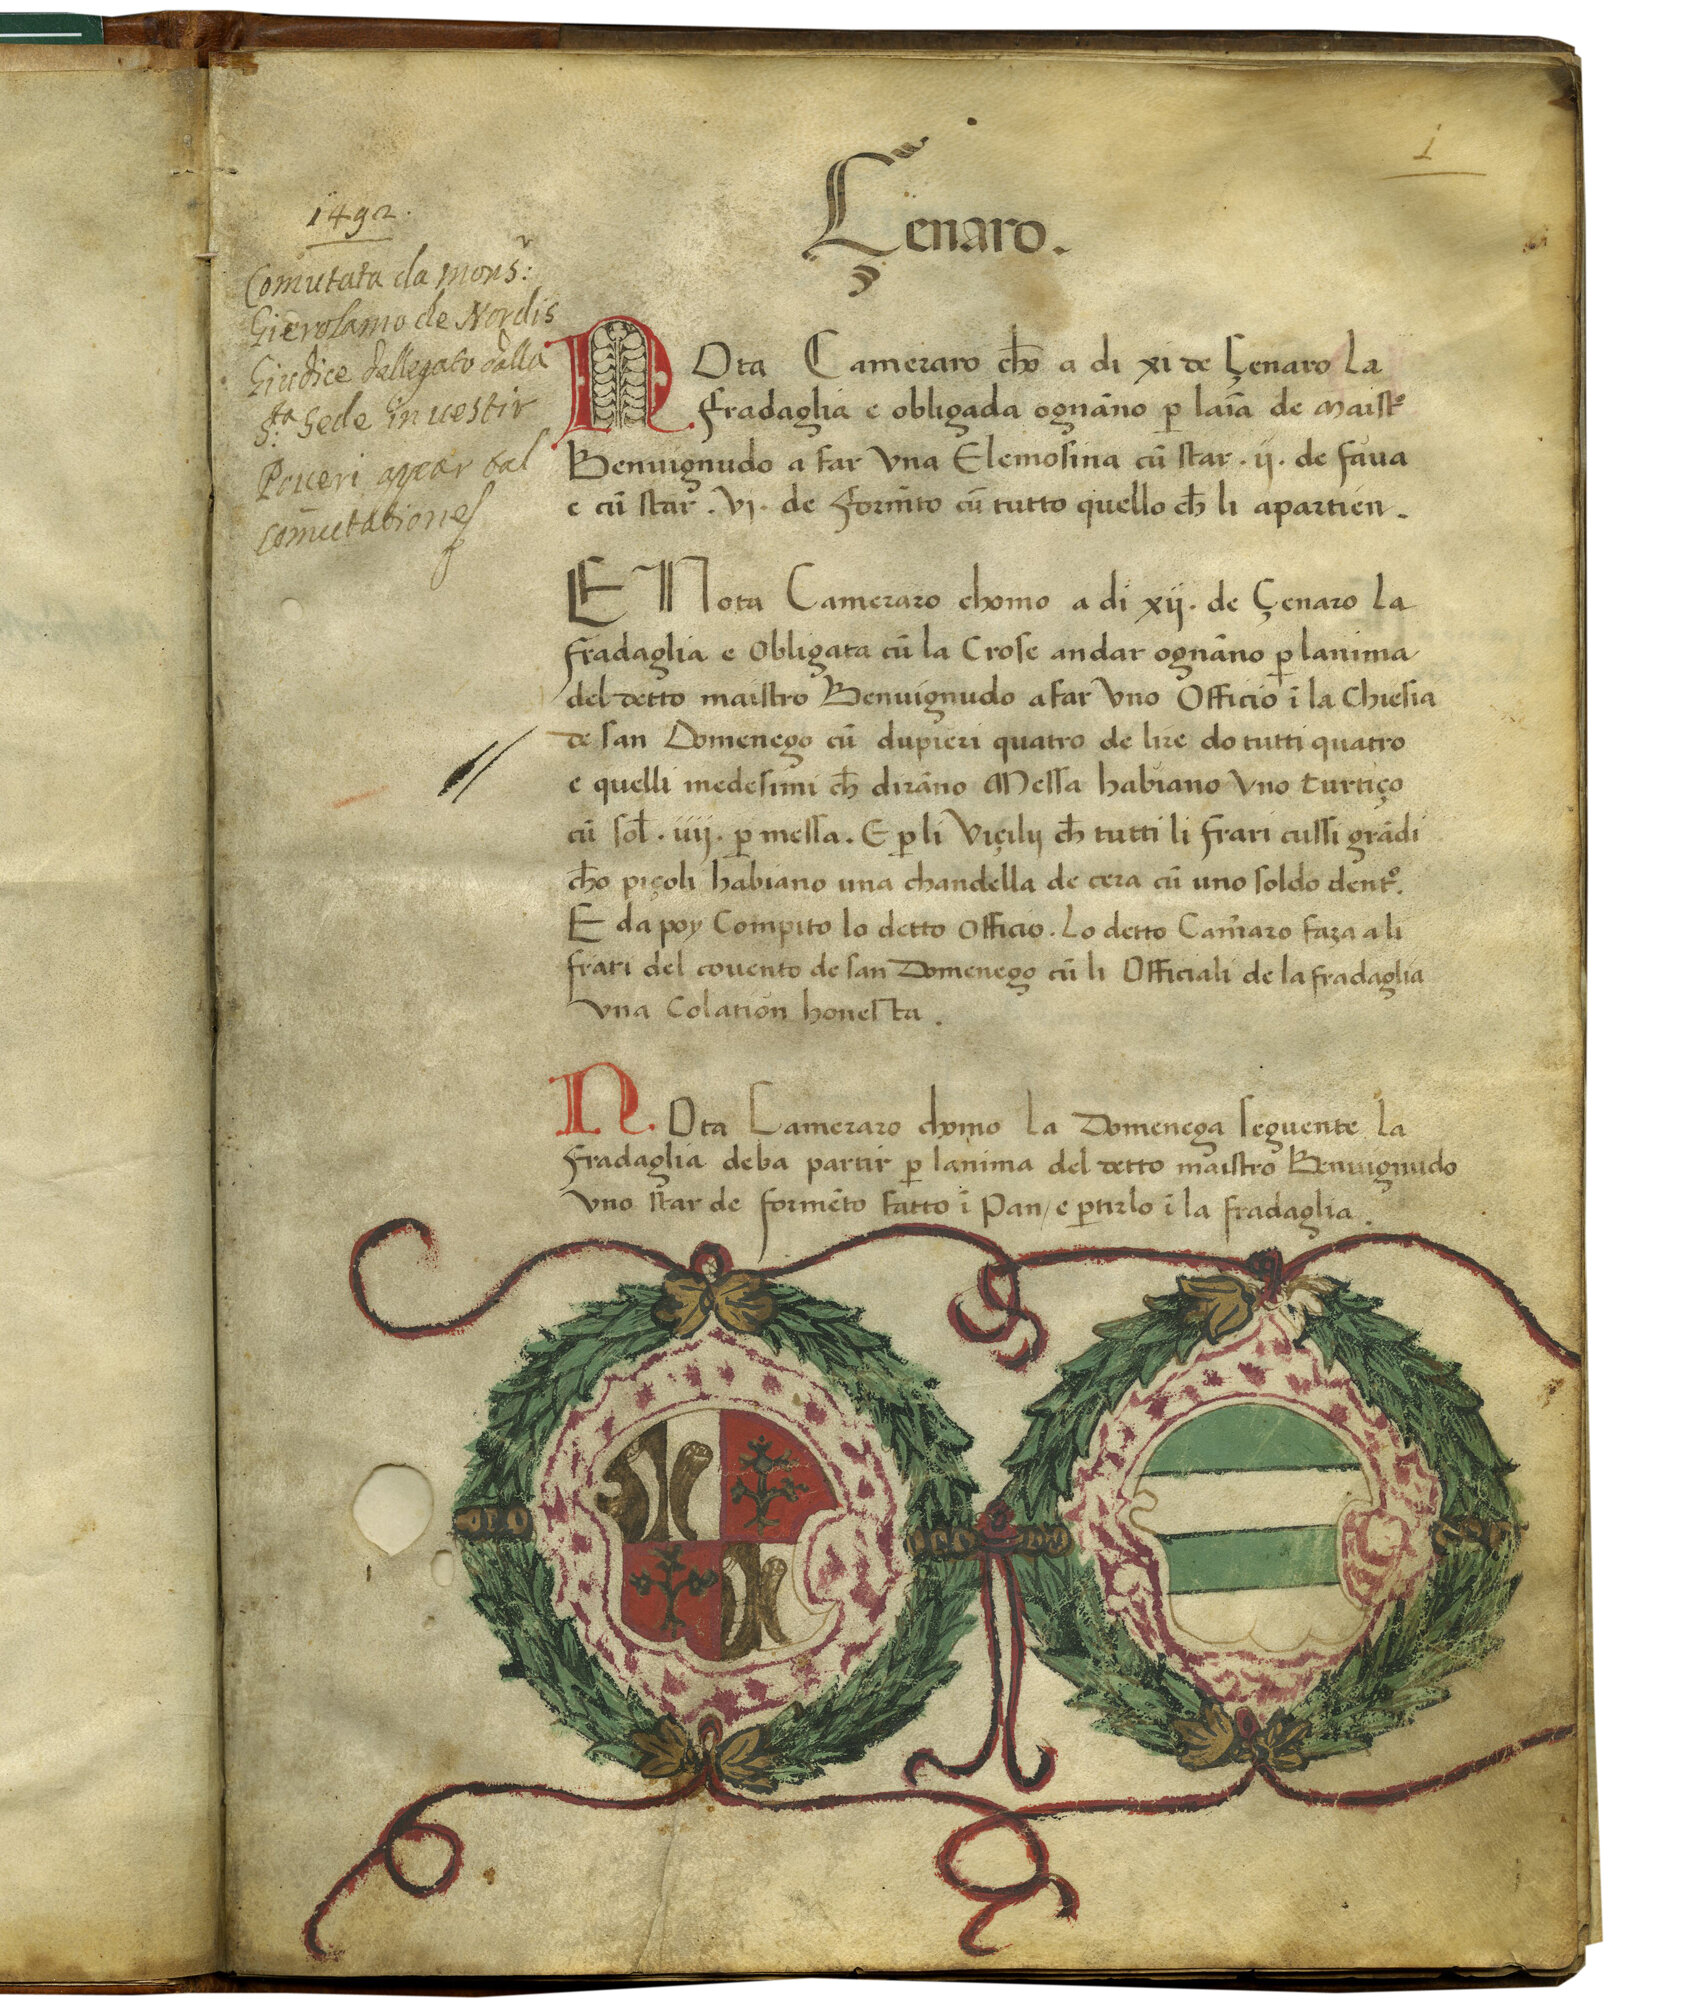 1
Çenaro.
1492.
Comutata da mons.r:
Gierolamo de Nordis
Giudice dellegato dalla
S.ta Sede in uestir
Poueri appar dal
com̄utationes
NOta Cameraro ch̄o a di xi de Çenaro la
fradaglia e obligada ognāno p̲ laīa de maistº
Benuignudo a far vna Elemosina cū star . ij . de faua
e cū star . vi . de form̄to cū tutto quello ch̄ li apartien .
E Nota Cameraro chomo a di xij . de Çenaro la
fradaglia e obligata cū la Crose andar ognāno p̲ lanima
del detto maistro Benuignudo a far vno Officio ī la Chiesia
de san Domenego cū dupieri quatro de lire do tutti quatro
e quelli medesimi ch̄ dirāno Messa habiano vno turtiço
cū sol̄ . iiij . p̲ messa . E p̲ li viçilij ch̄ tutti li frari cussi grādi
ch̄o piçoli habiano una chandella de cera cū uno soldo dentº.
E da poy Compito lo detto Officio . Lo detto Cam̄aro faza a li
frari del couento de san Domenego cū li Officiali de la fradaglia
vna Colation honesta .
N. Ota Cameraro chomo la Domenega seguente la
fradaglia deba partir p̲ lanima del detto maistro Benuignudo
vno star de formēto fatto ī Pan / e p̲tirlo ī la fradaglia .